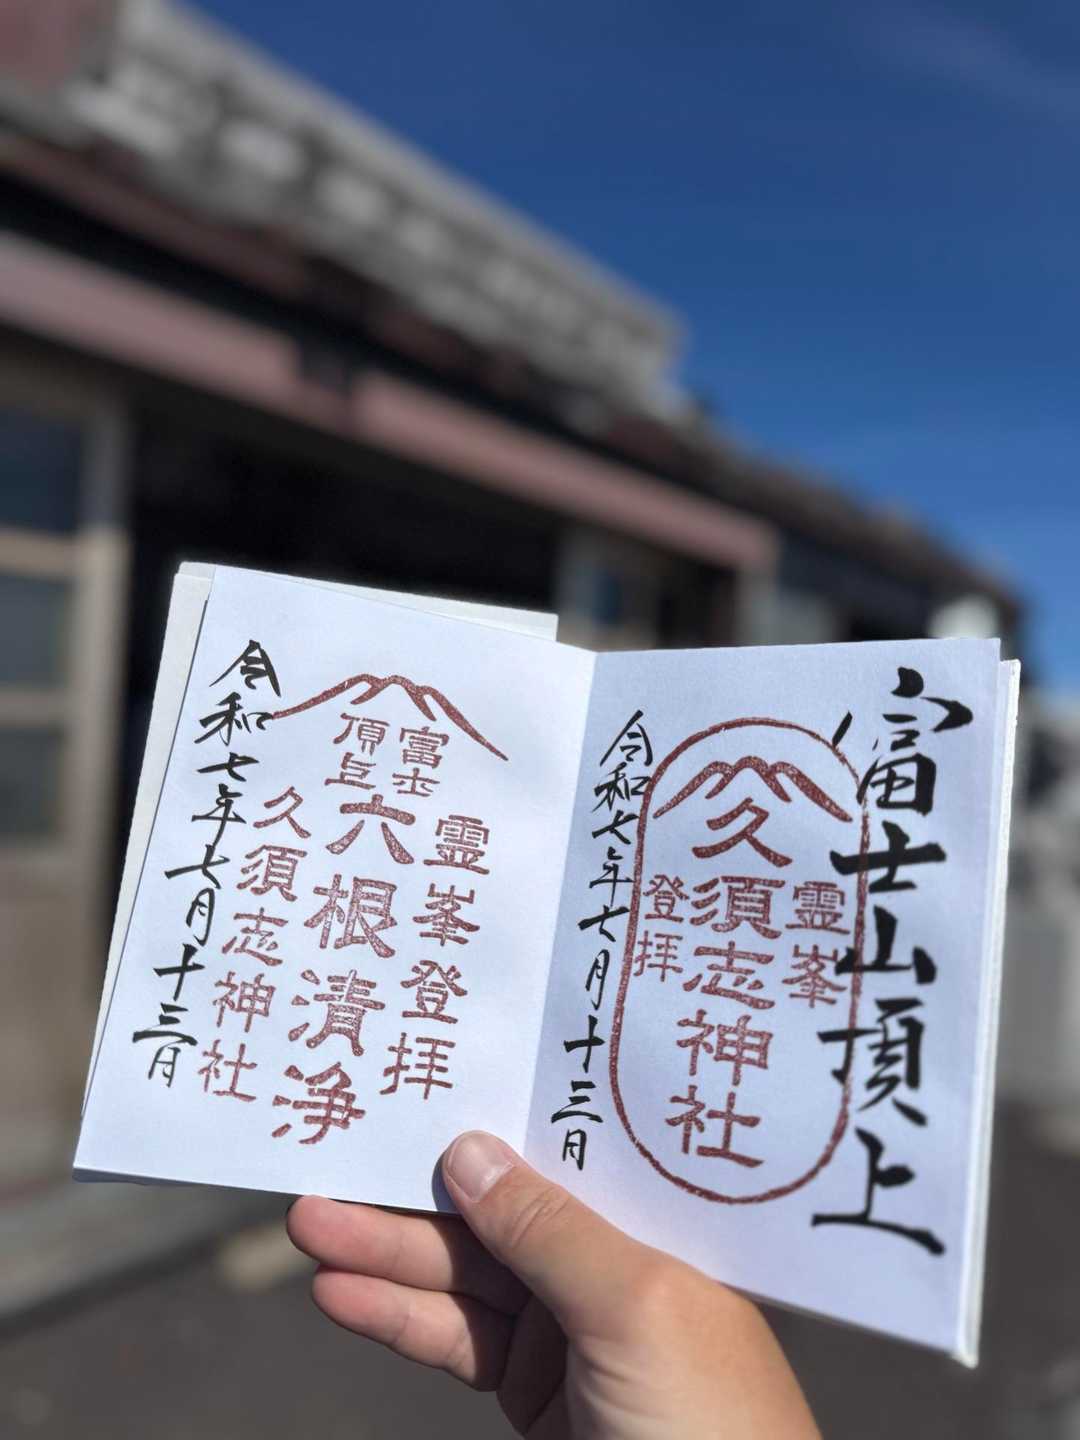 富士山頂上
霊峯
久須志神社
登拝
令和七年七月十三日
富士
頂上
霊峯登拝
六根清浄
久須志神社
令和七年七月十三日